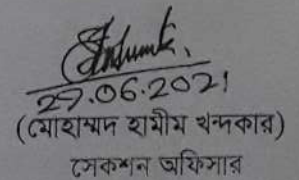 27.06.2021
(মোহাম্মদ হামীম খন্দকার)
সেকশন অফিসার